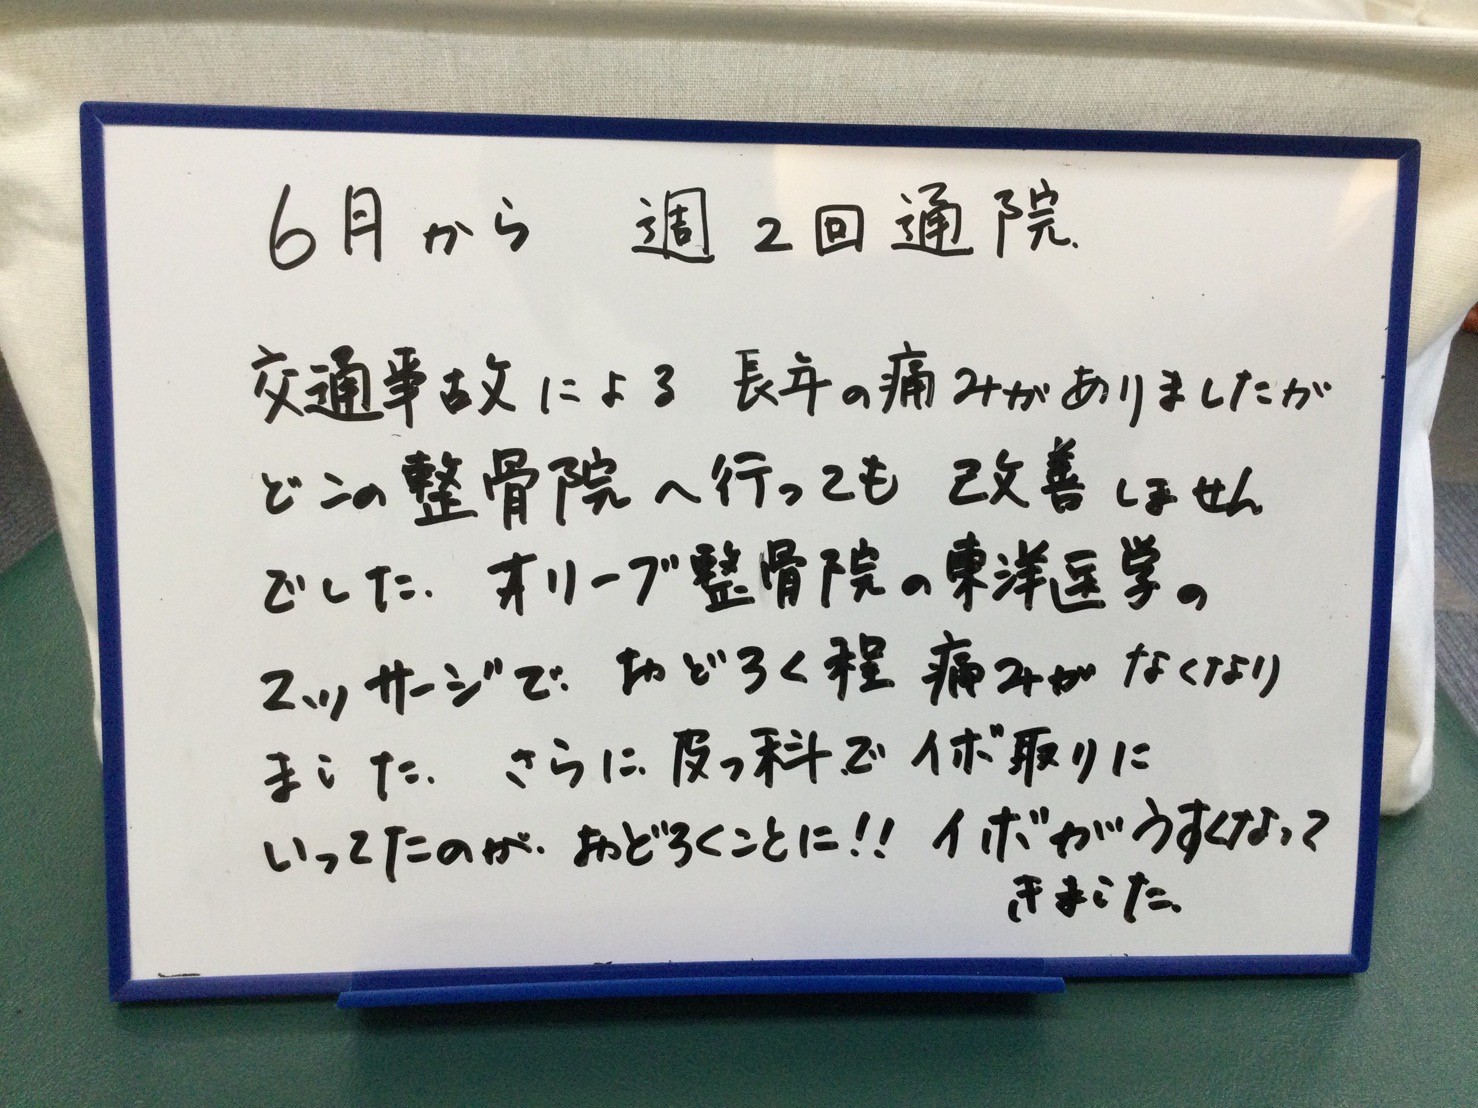 6月から 週2回通院.
交通事故による 長年の痛みがありましたが
どこの整骨院へ行っても 改善しません
でした. オリーブ整骨院の東洋医学の
マッサージで. おどろく程 痛みがなくなり
ました. さらに. 皮フ科でイボ取りに
いってたのが. おどろくことに!! イボがうすくなって
きました.